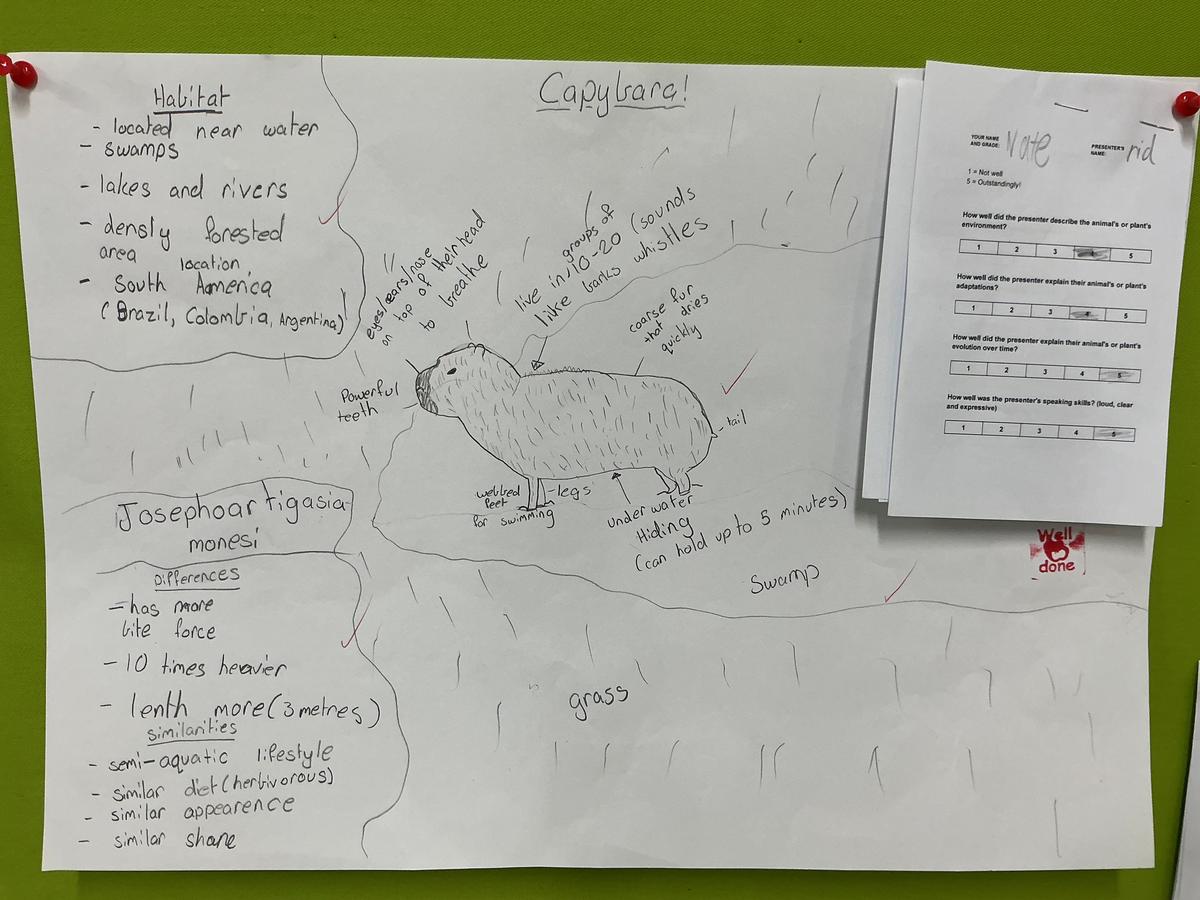 Habitat
- located near water
- swamps
- lakes and rivers
- densly forested
area
location
- South America
(Brazil, Colombia, Argentina)
Capybara!
eyes/ears/nose
on top of their head
to breathe
groups of
live in 10-20 (sounds
like barks whistles
coarse fur
that dries
quickly
Powerful
teeth
- tail
webbed
feet
for swimming
- legs
under water
Hiding
(can hold up to 5 minutes)
Swamp
grass
Josephoartigasia
monesi
Differences
- has more
bite force
- 10 times heavier
- lenth more (3 metres)
Similarities
- semi-aquatic lifestyle
- similar diet (herbivorous)
- similar appearence
- similar shape
YOUR NAME
AND GRADE:
Nate
PRESENTER'S
NAME:
rid
1 = Not well
5 = Outstandingly!
How well did the presenter describe the animal's or plant's
environment?
1 2 3 4 5
How well did the presenter explain their animal's or plant's
adaptations?
1 2 3 4 5
How well did the presenter explain their animal's or plant's
evolution over time?
1 2 3 4 5
How well was the presenter's speaking skills? (loud, clear
and expressive)
1 2 3 4 5
Well
done